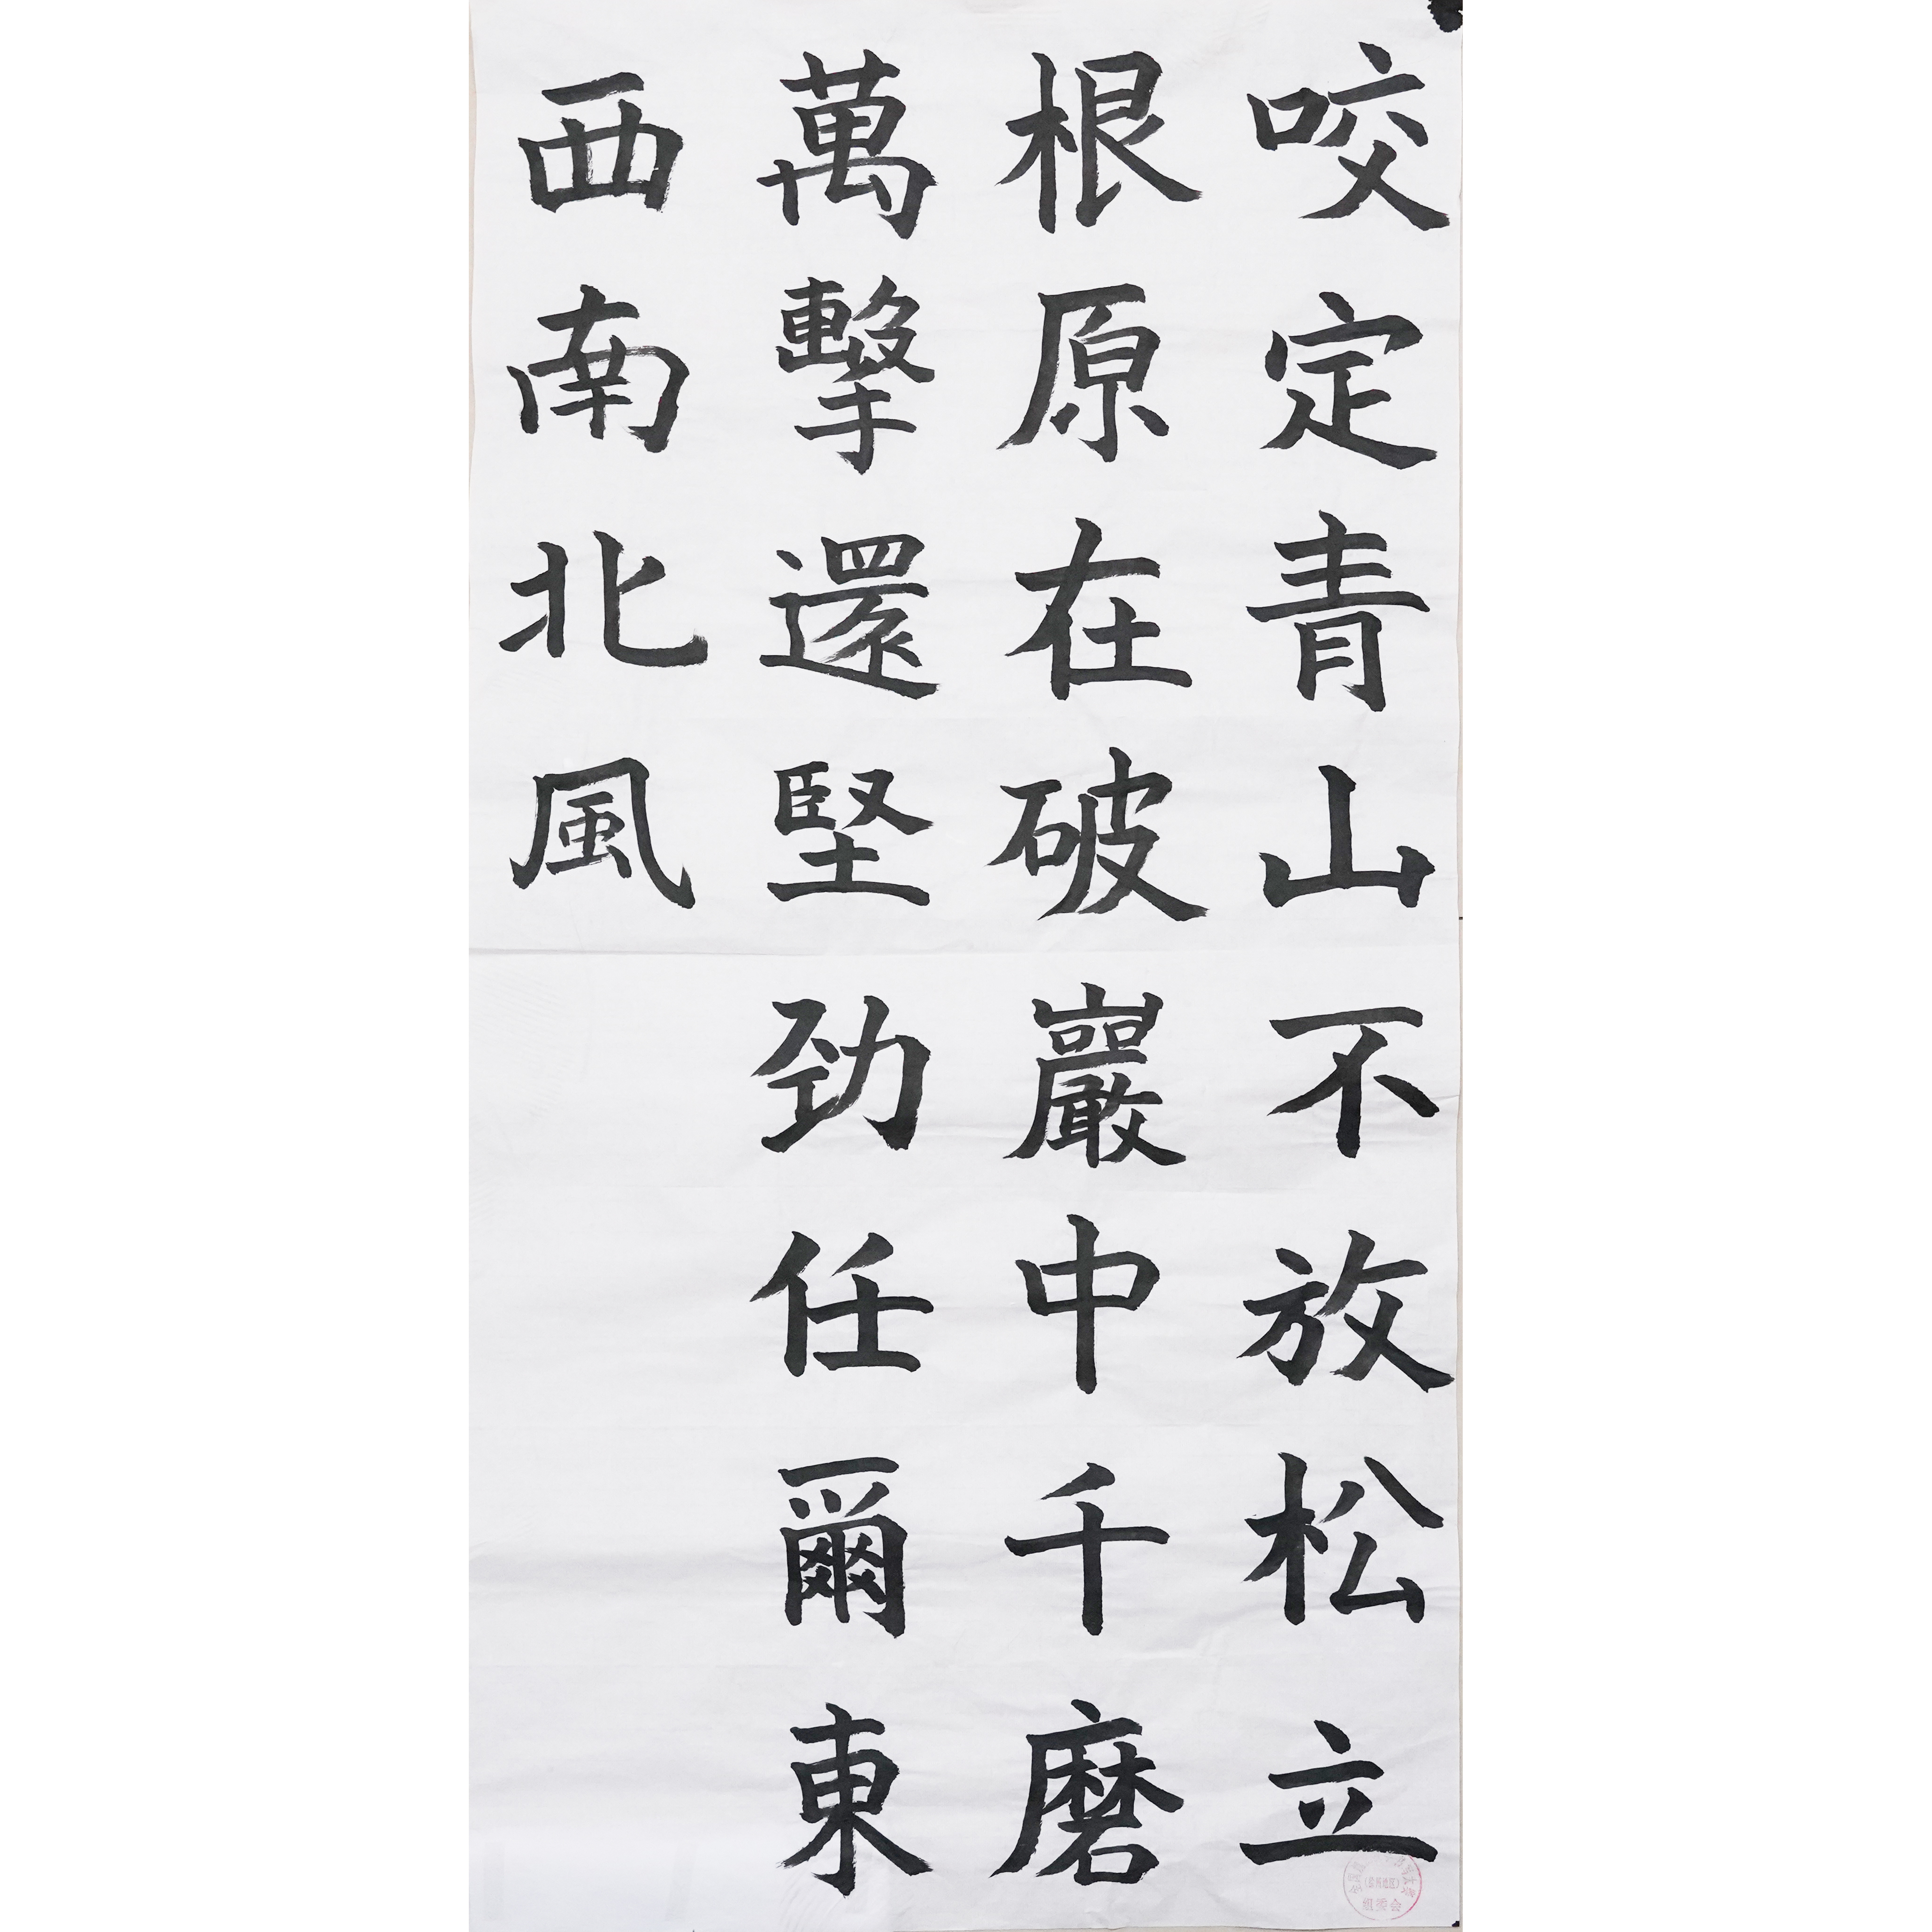 咬定青山不放松立
根原在破巖中千磨
萬擊還堅劲任爾東
西南北風
組委会